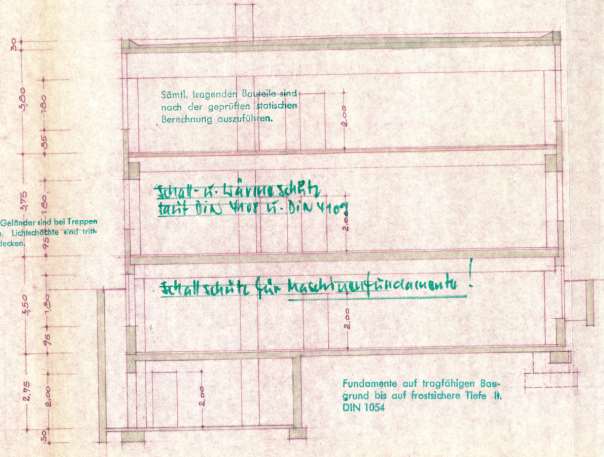 Sämtl. tragenden Bauteile sind
nach der geprüften statischen
Berechnung auszuführen.
Schall- u. Wärmeschutz
laut DIN 4108 u. DIN 4109
Geländer sind bei Treppen
Lichtschächte sind tritt-
decken.
Schallschutz für Maschinenfundamente!
Fundamente auf tragfähigen Bau-
grund bis auf frostsichere Tiefe lt.
DIN 1054
30
3,80
1,80
95
3,75
1,80
95
3,50
1,80
95
2,75
2,00
30
2,00
2,00
2,00
2,00